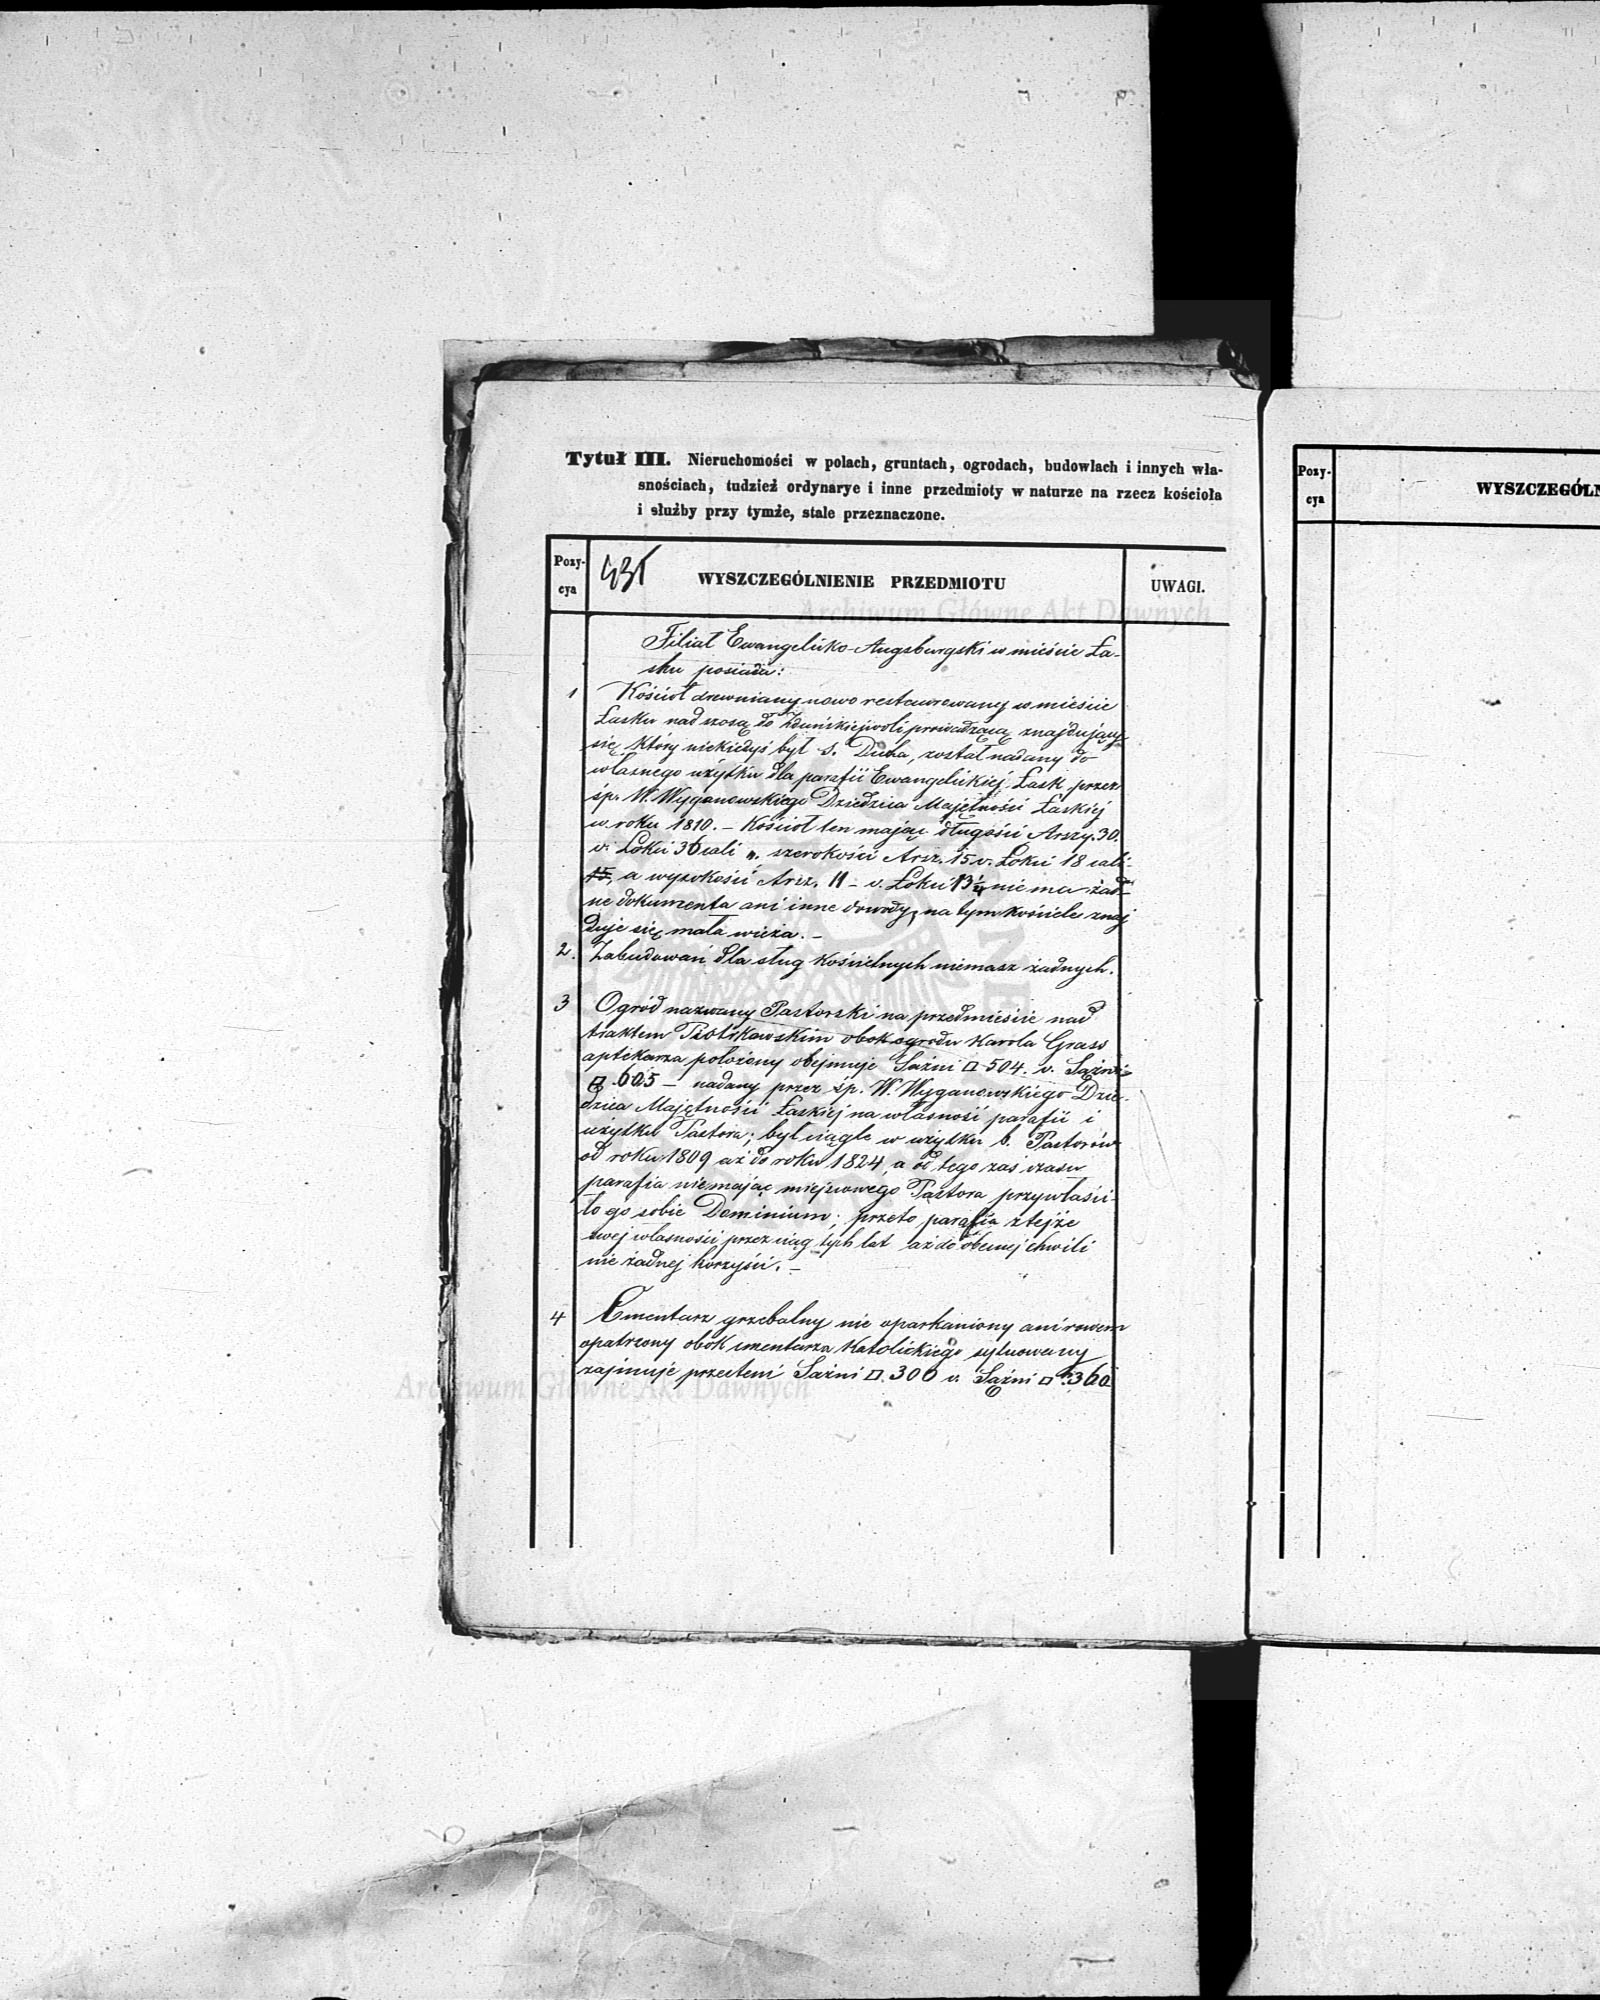 Tytuł III. Nieruchomości w polach, gruntach, ogrodach, budowlach i innych wła-
snościach, tudzież ordynarye i inne przedmioty w naturze na rzecz kościoła
i służby przy tymże, stale przeznaczone.
Pozy-
cya
WYSZCZEGÓLNIENIE PRZEDMIOTU
UWAGI.
Archiwum Główne Akt Dawnych
Filiał Ewangelicko-Augsburgski w mieście Ła-
sku posiada:
1 Kościoł drewniany nowo restaurowany w mieście
Łasku nad szosą do Zduńskiejwoli prowadzącą znajdujący
się, który niekiedyś był S. Ducha, został nadany do
własnego użytku dla parafii Ewangelickiej Łask przez
śp. W. Wyganowskiego Dziedzica Majętności Łaskiej
w roku 1810. – Kościoł ten mając długości Arszy. 30.
v. Łokci 36 cali „. szerokości Arsz. 15 v. Łokci 18 cali
15, a wysokości Arsz. 11 – v. Łokci 13 1/4 nie ma żad-
ne dokumenta ani inne dowody, na tym kościele znaj
duje się mała wieża. –
2. Zabudowań dla sług kościelnych niemasz żadnych.
3 Ogród nazwany Pastorski na przedmieście nad
traktem Piotrkowskim obok ogrodu Karola Grass
aptekarza położony obejmuje Sażni □ 504. v. Sążni
□. 605 – nadany przez śp. W. Wyganowskiego Dzie-
dzica Majętności Łaskiej na własność parafii i
użytku Pastora; był ciągle w użytku b. Pastorów
od roku 1809 aż do roku 1824, a od tego zas czasu
parafia niemając miejscowego Pastora przywłasci-
ło go sobie Dominium; przeto parafia z tejże
swej własności przez ciąg tych lat aż do obecnej chwili
nie żadnej korzyści. –
4 Cmentarz grzebalny nie oparkaniony ani rowem
opatrzony obok cmentarza Katolickiego sytuowany
zajmuje przesteni Sażni □. 300 v. Sążni □ 360
Archiwum Główne Akt Dawnych
Pozy-
cya
WYSZCZEGÓLN